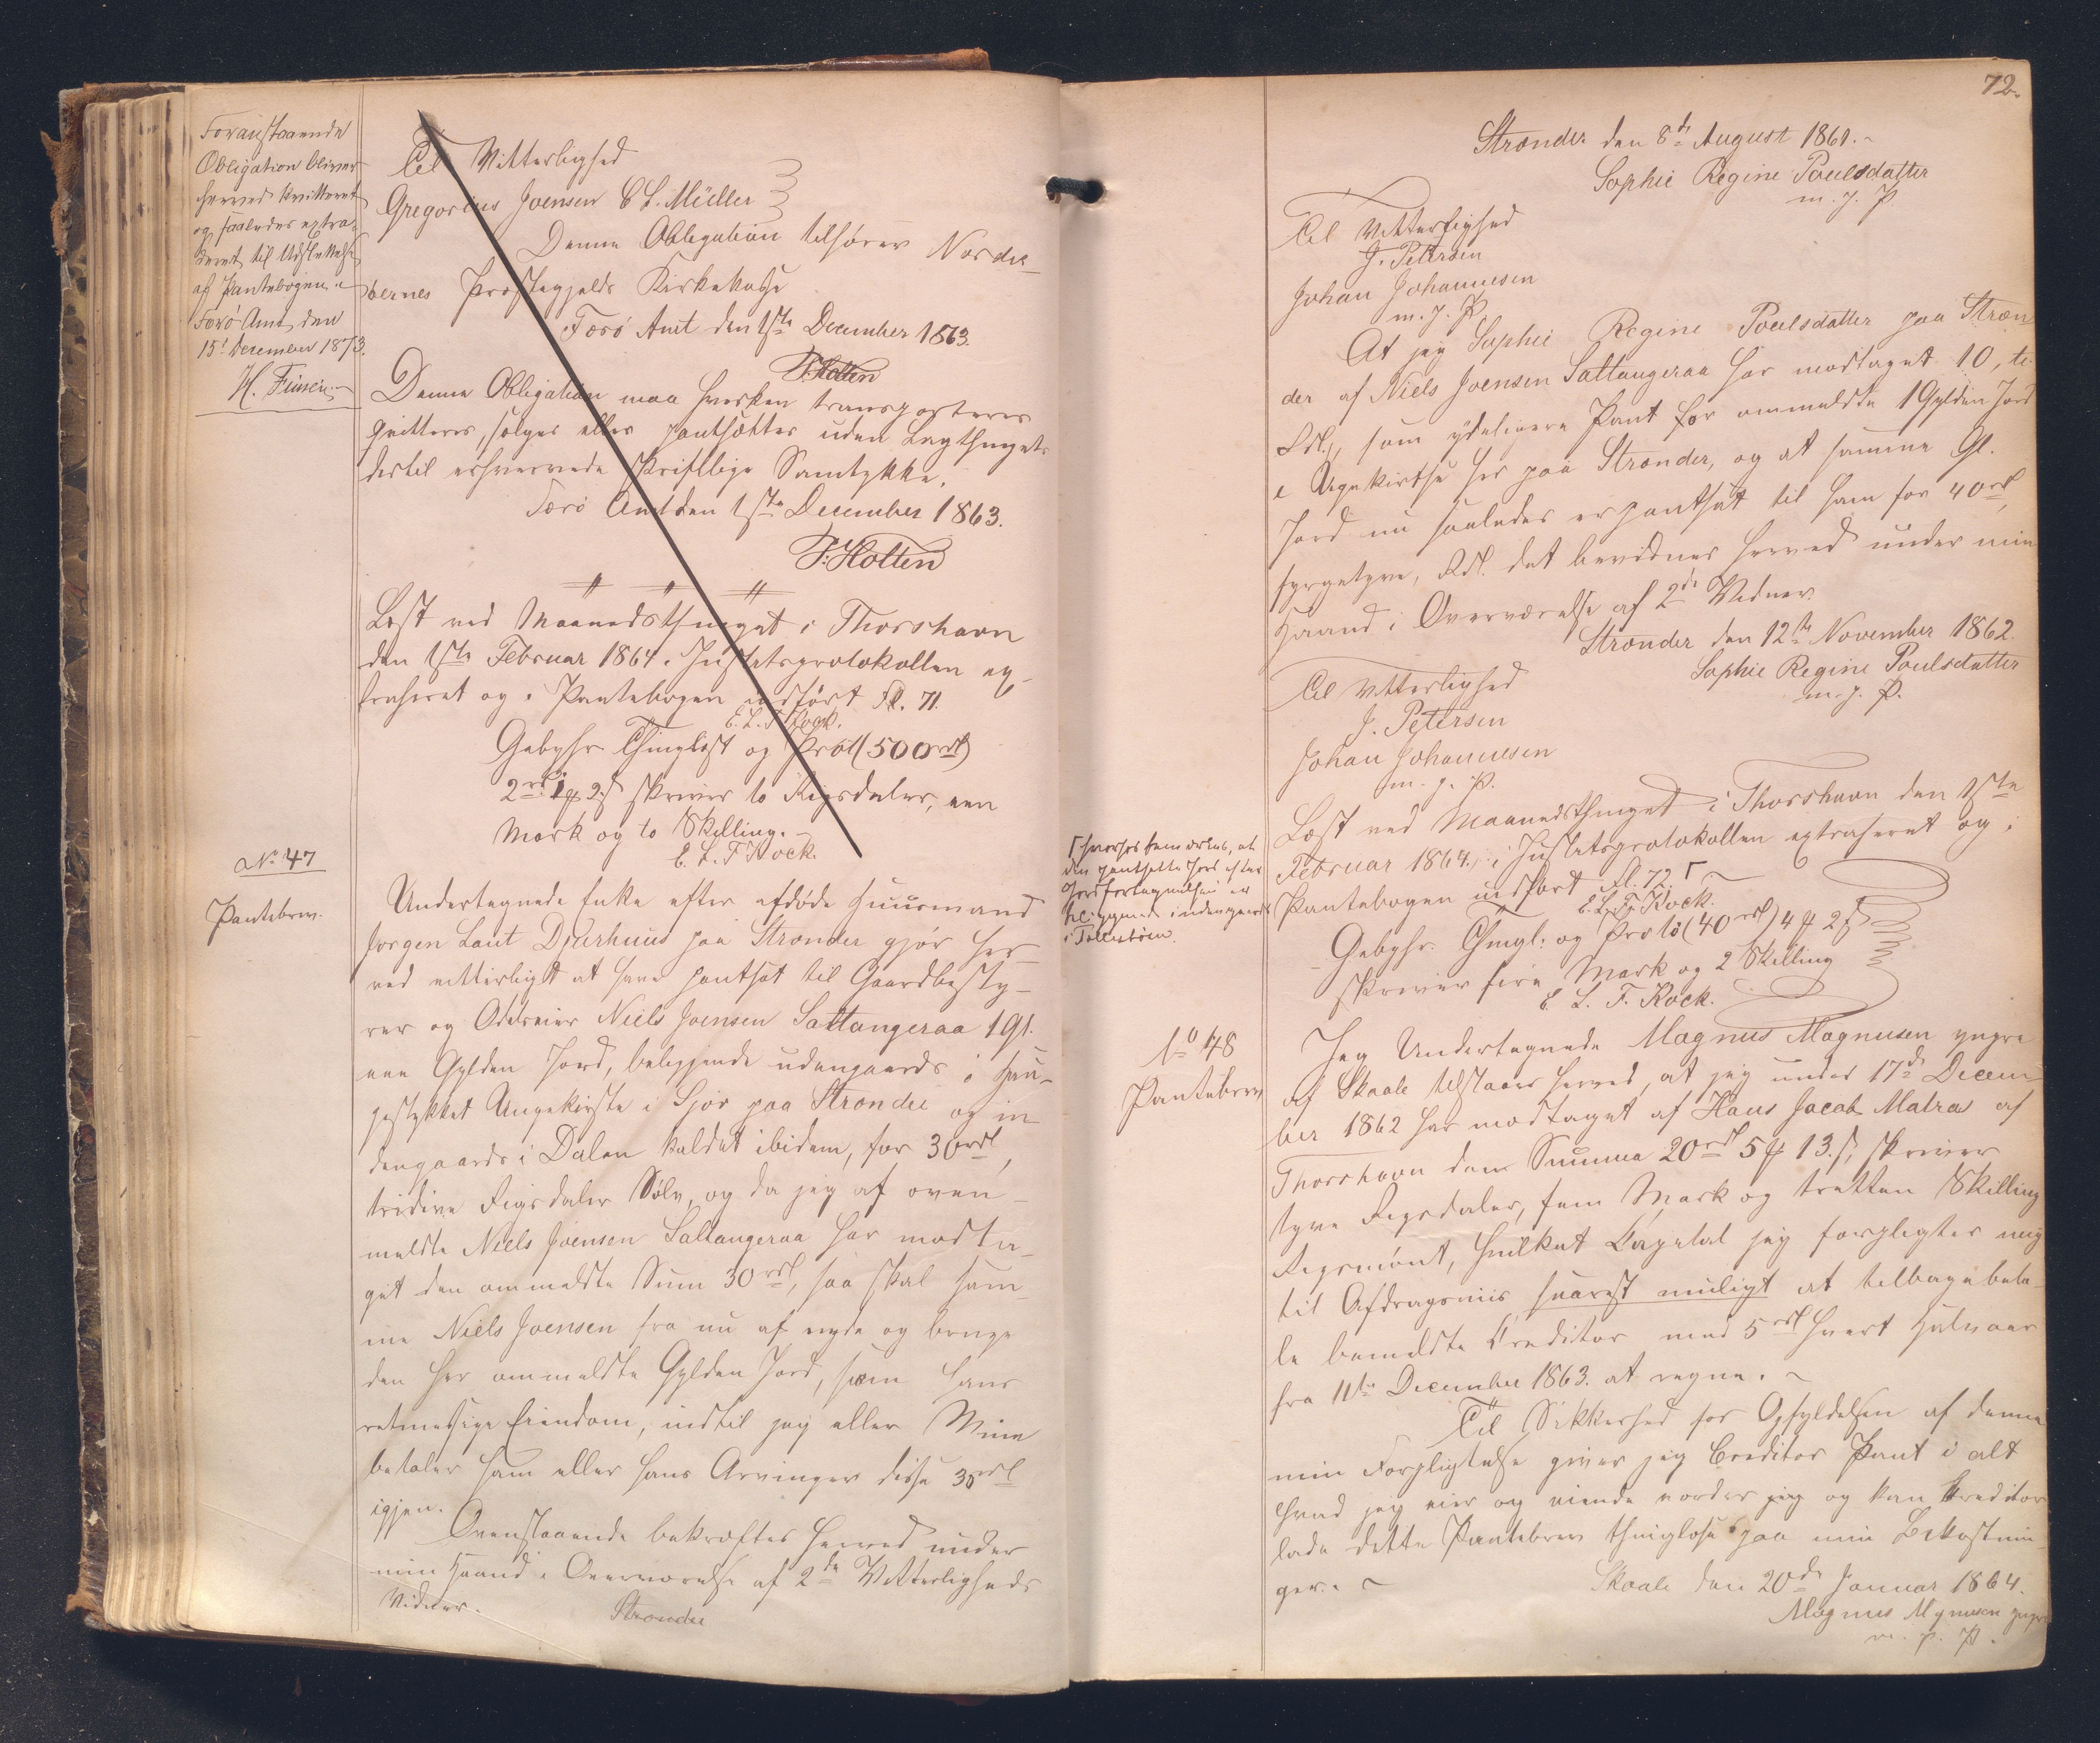 Foranstaaende
Obligation bliver
herved kvitteret
og saaledes extra-
deret til Udslettelse
af Pantebogen.
Færø Amt, den
15d December 1873.
H. Finsen
Til Vitterlighed
Gregorius Joensen C L. Müller
Denne Obligation tilhører Norder-
øernes Præstegjelds Kirkekasse
Færø Amt den 1ste December 1863.
P. Holten
Denne Obligation maa hverken transporteres
qvitteres, sælges eller pantsættes uden Lagthingets
dertil erhvervede skriftlige Samtykke.
Færø Amt den 1ste December 1863.
P. Holten
Læst ved Maanedsthinget i Thorshavn
den 1ste Februar 1864. Justitsprotokollen ex-
traheret og i Pantebogen indført Fol. 71.
E. L. F Kock.
Gebyhr Thinglæst og Prot (500 rd)
2 rd 1 2 s skriver to Rigsdaler, een
Mark og to Skilling.
E. L. F Kock.
No 47
Pantebrev.
Undertegnede Enke efter afdøde Huusmand
Jørgen Laut Djurhuus paa Strænder gjør her-
ved vitterligt at have pantsat til Gaardbesty-
rer og Odelseier Niels Joensen Saltangeraa 1 Gl.
een Gylden Jord, beliggende udengaards i Hau-
gestykket Ungekirste i Sjov paa Strænder og in-
dengaards i Dalen kaldet ibidem, for 30 rd,
tredive Rigsdaler Sølv, og da jeg af oven-
meldte Niels Joensen Saltangeraa har modta-
get den ommeldte Sum 30 rd, saa skal sam-
me Niels Joensen fra nu af nyde og bruge
den her ommeldte Gylden Jord, som hans
retmæssige Eiendom, indtil jeg eller Mine
betaler ham eller hans Arvinger disse 30 rd
igjen.
Ovenstaaende bekræftes herved under
min Haand i Overværelse af 2de Vitterligheds
Vidner.
Strænder
72.
Strænder den 8de August 1861.
Sophie Regine Poulsdatter
m. f. P.
Til Vitterlighed
J. Petersen
Johan Johannesen
m. f. P.
At jeg Sophie Regine Poulsdatter paa Stræn
der af Niels Joensen Saltangeraa har modtaget 10, ti
Rd., som yderligere Pant for ommeldte 1 Gylden Jord
i Ungekirste her paa Strænder, og at samme Gl.
Jord nu saaledes er pantsat til ham for 40 rd,
fyrgetyve, Rd. det bevidnes herved under min
Haand i Overværelse af 2de Vidner.
Strænder den 12te November 1862.
Sophie Regine Poulsdatter
m. f. P.
Til Vitterlighed
J. Petersen
Johan Johannesen
m. f. P.
Læst ved Maanedsthinget i Thorshavn den 1ste
Februar 1864, i Justitsprotokollen extraheret og i
Pantebogen indført Fol. 72. Γ
E. L. F. Kock.
Γ hvorhos bemærkes, at
den pantsatte Jord efter
beliggende indengaards
Gebyhr. Thingl: og Proto (40 rd) 4 2 s
skriver fire Mark og 2 Skilling
E. L. F. Kock.
No 48
Pantebrev
Jeg Undertegnede Magnus Magnusen yngre
af Skaale tilstaaer herved, at jeg under 17de Decem-
ber 1862 har modtaget af Hans Jacob Matras af
Thorshavn den Summa 20 rd 5 13 s, skriver
tyve Rigsdaler, fem Mark og tretten Skilling
Rigsmønt, hvilket Capital jeg forpligter mig
til Afdragsviis snarest muligt at tilbagebeta-
le bemeldte Creditor med 5 rd hvert Halvaar
fra 11te December 1863. at regne.
Til Sikkerhed for Opfyldelsen af denne
min Forpligtelse giver jeg Creditor Pant i alt
hvad jeg eier og eiende vorder og kan Kreditor
lade dette Pantebrev thinglæse paa min Bekostnin-
ger.
Skaale den 20de Januar 1864.
Magnus Magnusen yngre
m. f. P.